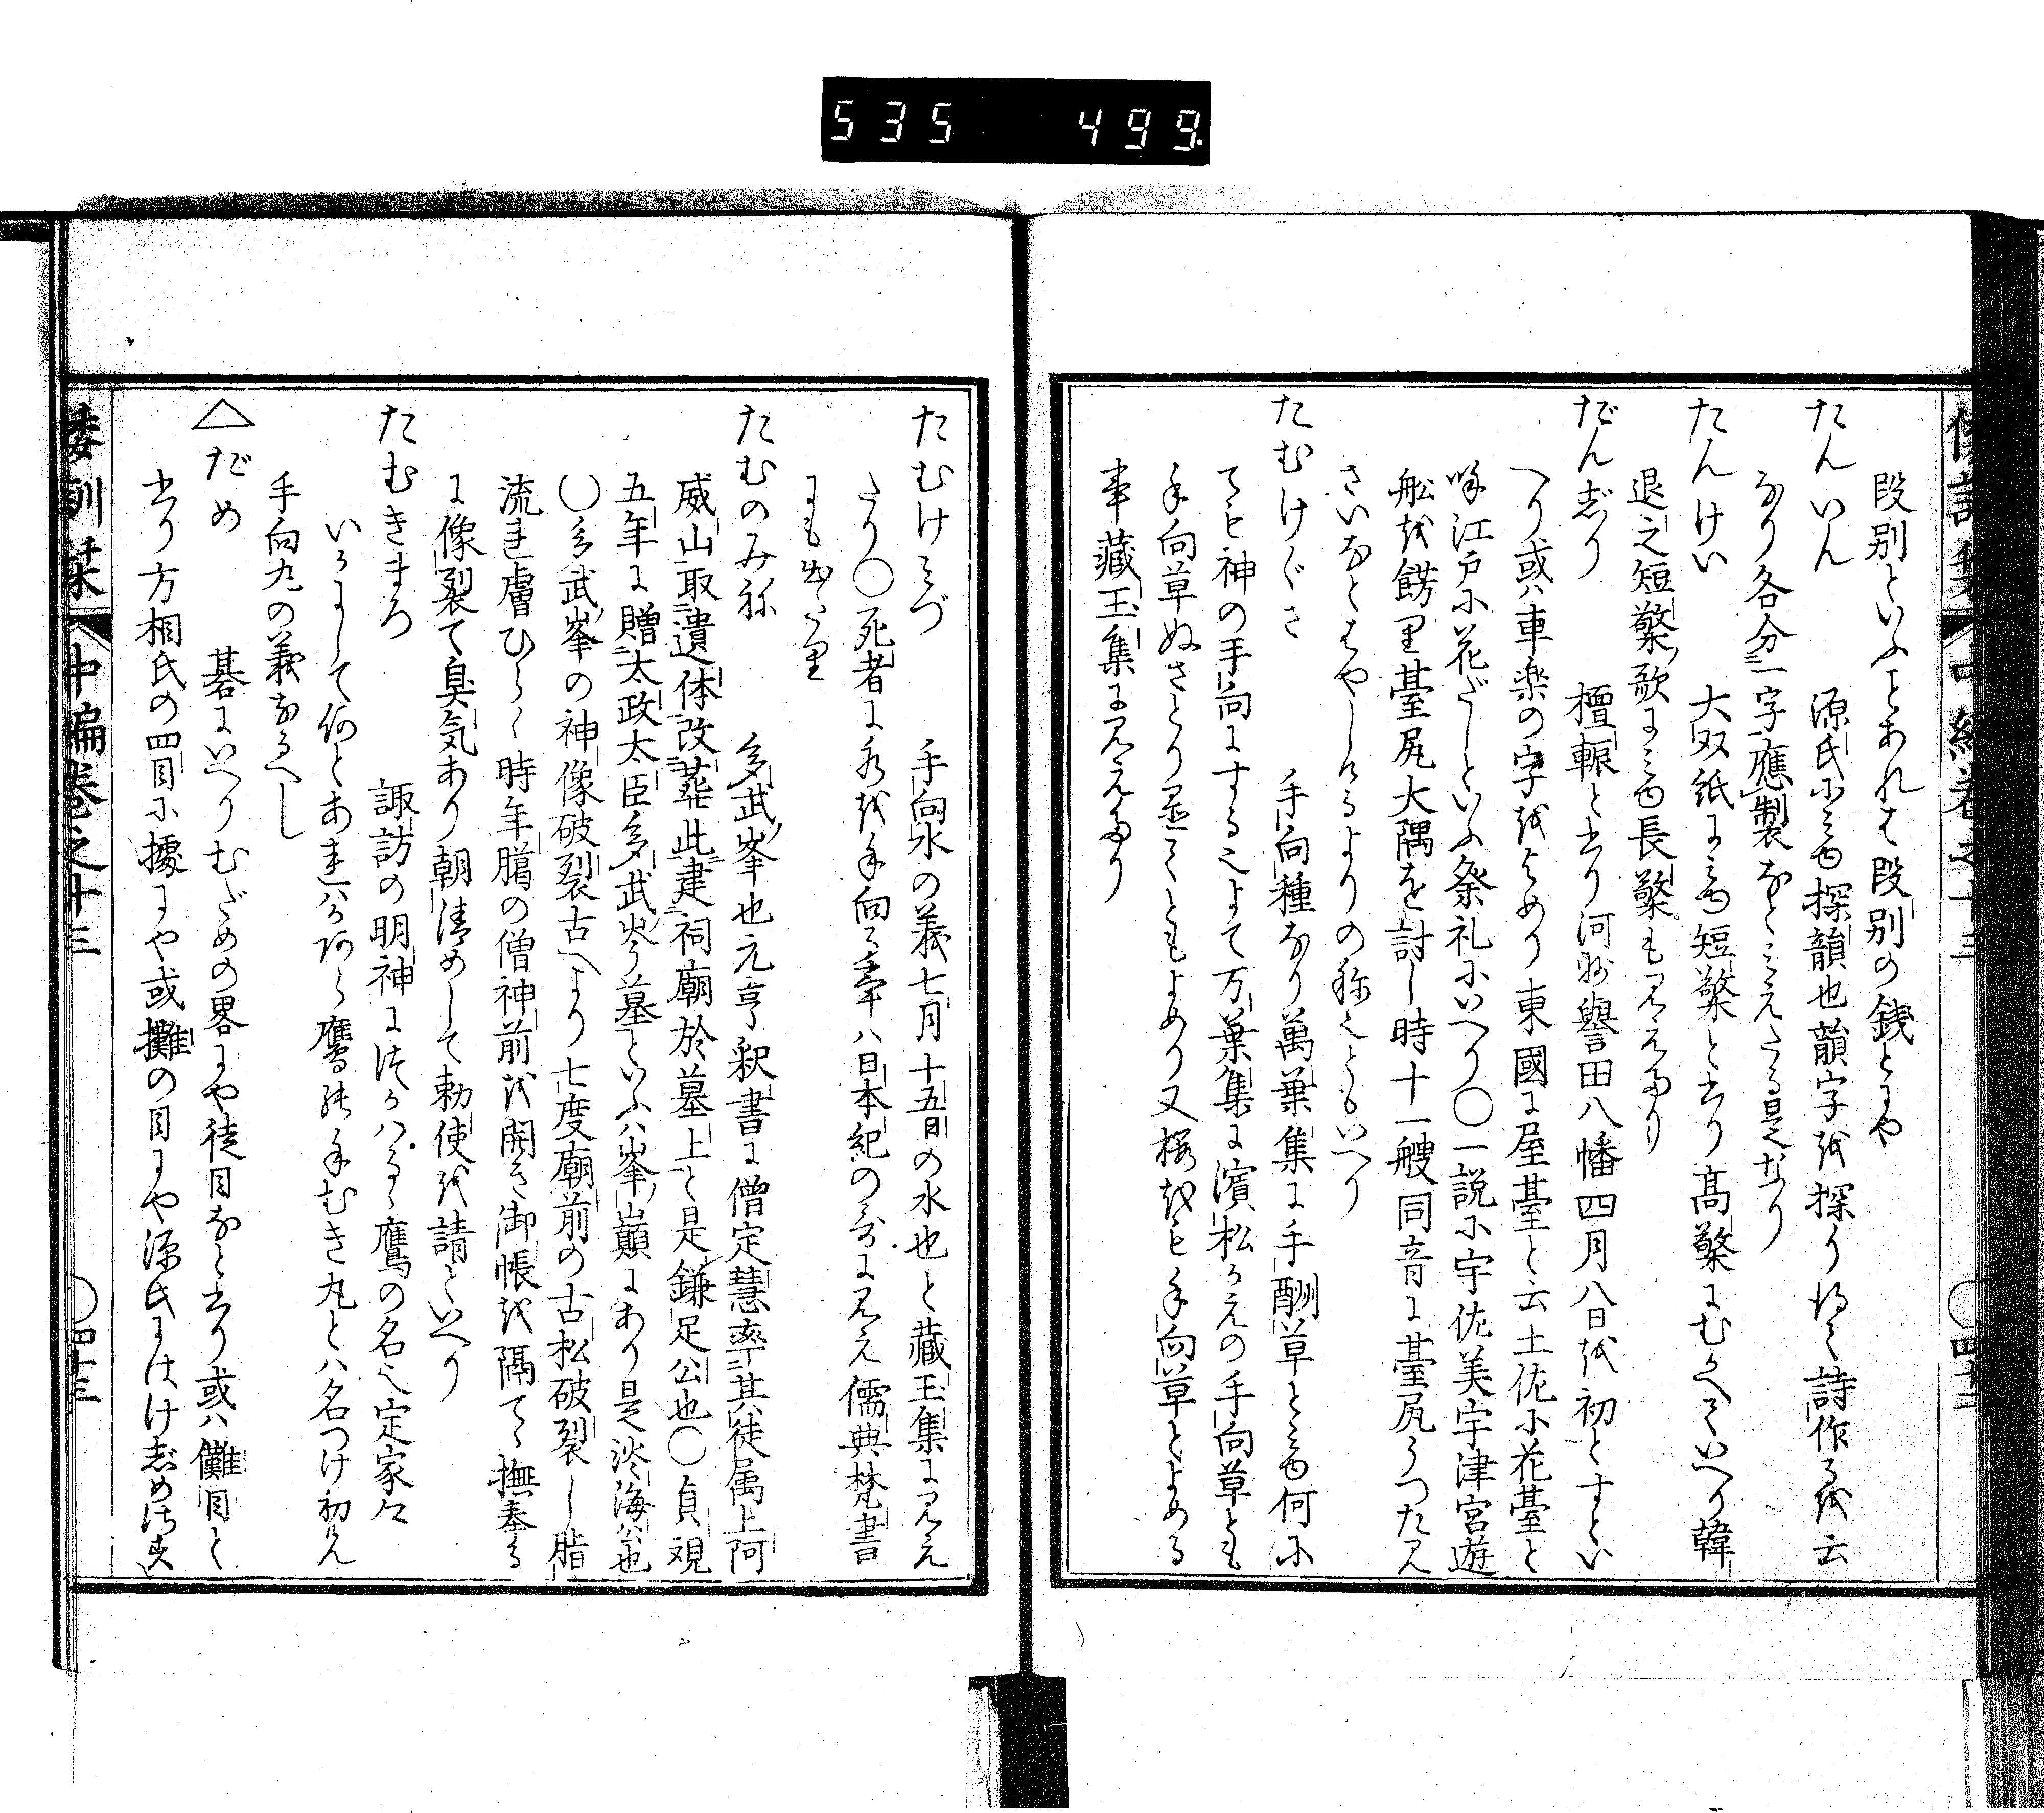 535 499
段別といふことあれは段別の銭とにや
たんいん 源氏にみゆ探韻也韻字を探り得て詩作るを云
なり各分一字應製なとみえたる是なり
たんけい 大双紙にみゆ短檠と書り高檠にむかへていへり韓
退之短檠歌にみゆ長檠も見えたり
だんじり 檀輾と書り河州譽田八幡四月八日を初とすとい
へり或ハ車楽の字をよめり東國に屋䑓と云土佐に花䑓と
江戸に花だしといふ祭礼にいへり〇一説に宇佐美宇津宮遊
舩を餝里䑓尻大隅を討し時十一艘同音に䑓尻うつたん
さいなとはやしけるよりの称ともいへり
たむけぐさ 手向種なり萬葉集に手酬草とみゆ何に
ても神の手向にするによて万葉集に濱松かえの手向草とも
手向草ぬさとり置てともよめり又桜をも手向草とよめる
事藏玉集に見えたり
たむけみづ 手向水の義七月十五日の水也と藏玉集に見え
たり〇死者に水を手向る事ハ日本紀の哥に見え儒典梵書
にも出たり
たむのみね 多武峯也元亨釈書に僧定慧率其徒属上阿
威山取遺体改葬此建祠廟於墓上と是鎌足公也〇貞観
五年に贈太政太臣多武岑墓といふハ峯山巓にあり是淡海公也
〇多武峯の神像破裂古へより七度廟前の古松破裂し脂
流れ膚ひらく時年﨟の僧神前を開き御帳を隔てゝ撫奉る
に像裂て臭気あり朝清めして勅使を請といへり
たむきまろ 諏訪の明神につかハるゝ鷹の名也定家々
いかにして何とあれハか同し鷹の手むき丸とハ名つけ初けん
手向丸の義なるへし
△だめ 碁にいへりむだめの畧にや徒目なと書り或ハ儺目と
書り方相氏の四目に據にや或攤の目にや源氏にはけじめ
倭訓栞 中編巻之十三 〇四十三